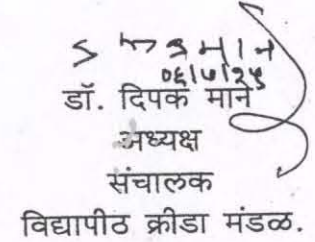 डॉ. दिपक माने
अध्यक्ष
संचालक
विद्यापीठ क्रीडा मंडळ.